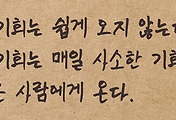 기회는 쉽게 오지 않는
기회는 매일 사소한 기회
사람에게 온다.